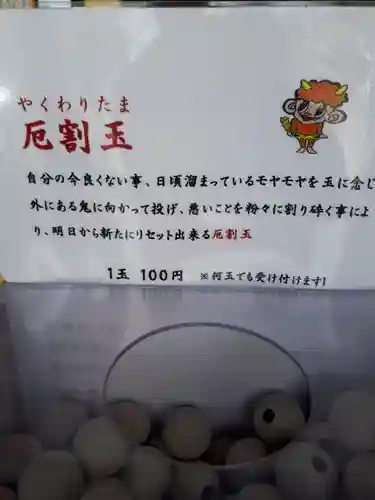 やくわりたま
厄割玉
自分の今良くない事、日頃溜まっているモヤモヤを玉に念じ
外にある鬼に向かって投げ、悪いことを粉々に割り砕く事によ
り、明日から新たにリセット出来る厄割玉
1玉 100円 ※何玉でも受け付けます!